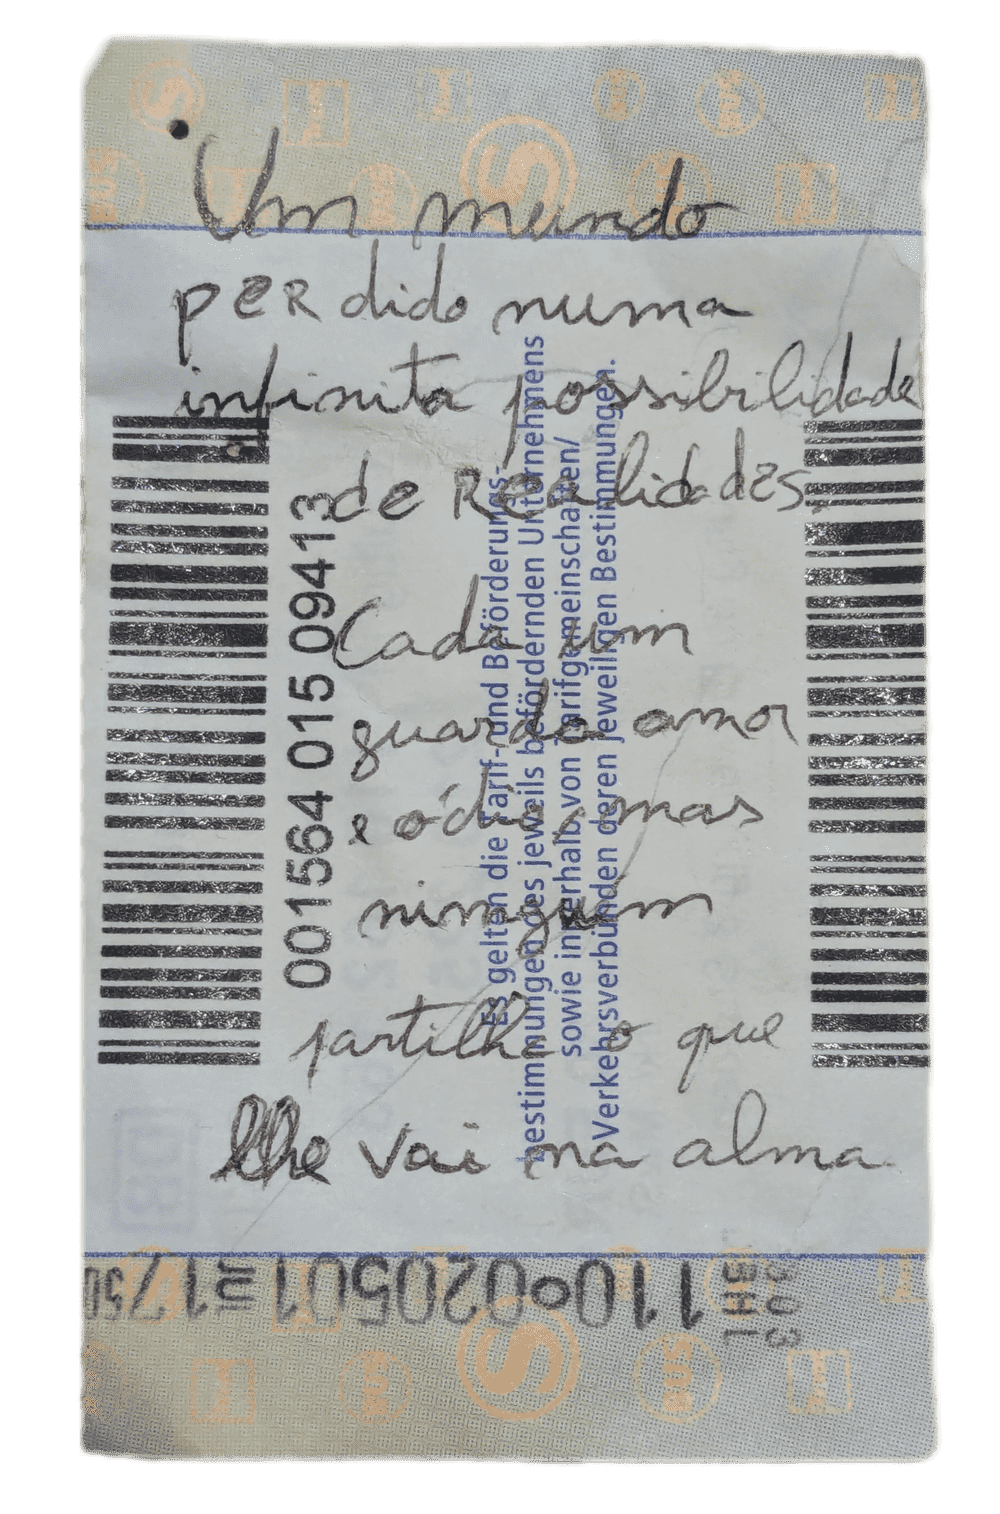 Um mundo
perdido numa
infinita possibilidade
de Realidades.
Cada um
guarda amor
e ódio, mas
ninguém
partilha o que
lhe vai na alma.
001564 015 09413
Es gelten die Tarif- und Beförderungs-
bestimmungen des jeweils befördernden Unternehmens
sowie innerhalb von Tarifgemeinschaften/
Verkehrsverbünden deren jeweiligen Bestimmungen.
S
BUS